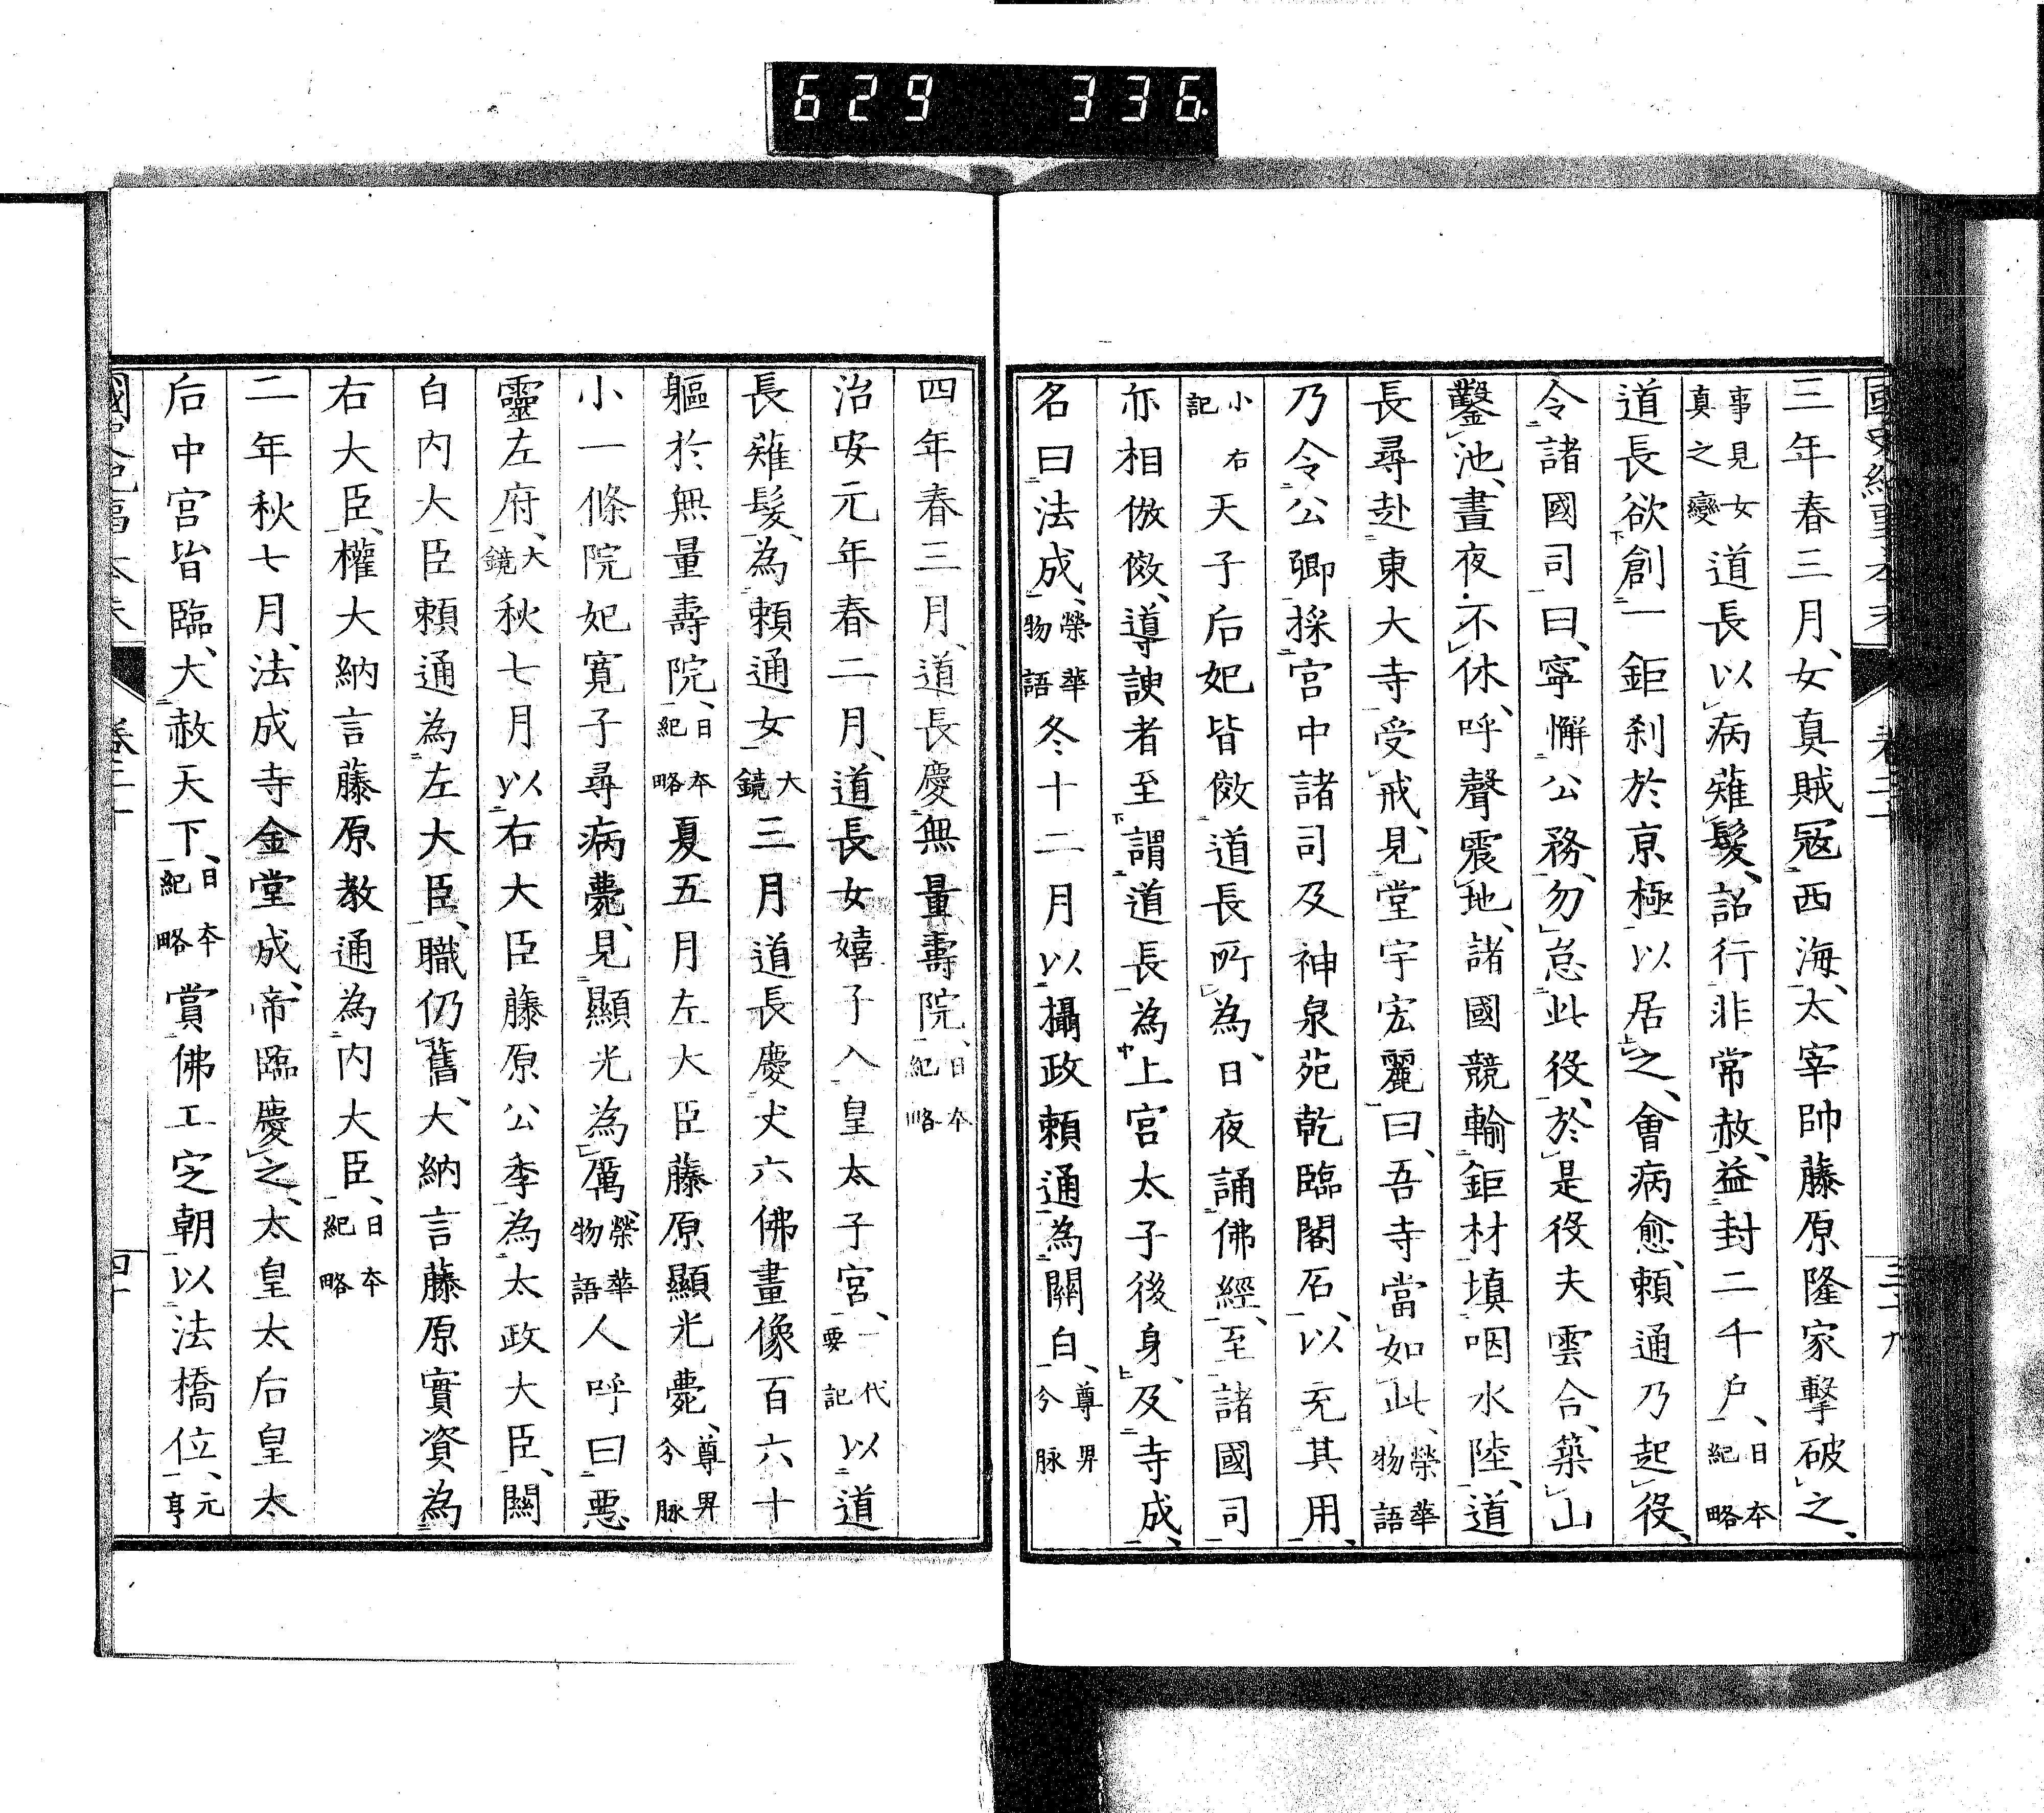 629 336
三年春三月、女真賊寇西海、太宰帥藤原隆家擊破之、
事見女真之變道長以病薙髮、詔行非常赦、益封二千戶、日本紀略
道長欲創一鉅刹於京極以居之、會病愈、賴通乃起役、
令諸國司曰、寧懈公務、勿怠此役、於是役夫雲合、築山
鑿池、晝夜不休、呼聲震地、諸國競輸鉅材、填咽水陸、道
長尋赴東大寺受戒、見堂宇宏麗曰、吾寺當如此、榮華物語
乃令公卿採宮中諸司及神泉苑乾臨閣石、以充其用、
小右記天子后妃皆倣道長所為、日夜誦佛經、至諸國司
亦相倣傚、導諛者至謂道長為上宮太子後身、及寺成、
名曰法成、榮華物語冬十二月以攝政賴通為關白、尊卑分脉
四年春三月、道長慶無量壽院、日本紀略
治安元年春二月、道長女嬉子入皇太子宮、一代要記以道
長薙髮、為賴通女大鏡三月道長慶丈六佛畫像百六十
軀於無量壽院、日本紀略夏五月左大臣藤原顯光薨、尊卑分脉
小一條院妃寬子尋病薨、見顯光為厲、榮華物語人呼曰惡
靈左府、大鏡秋七月以右大臣藤原公季為太政大臣、關
白內大臣賴通為左大臣、職仍舊、大納言藤原實資為
右大臣、權大納言藤原教通為內大臣、日本紀略
二年秋七月、法成寺金堂成、帝臨慶之、太皇太后皇太
后中宮皆臨、大赦天下、日本紀略賞佛工定朝以法橋位、元亨